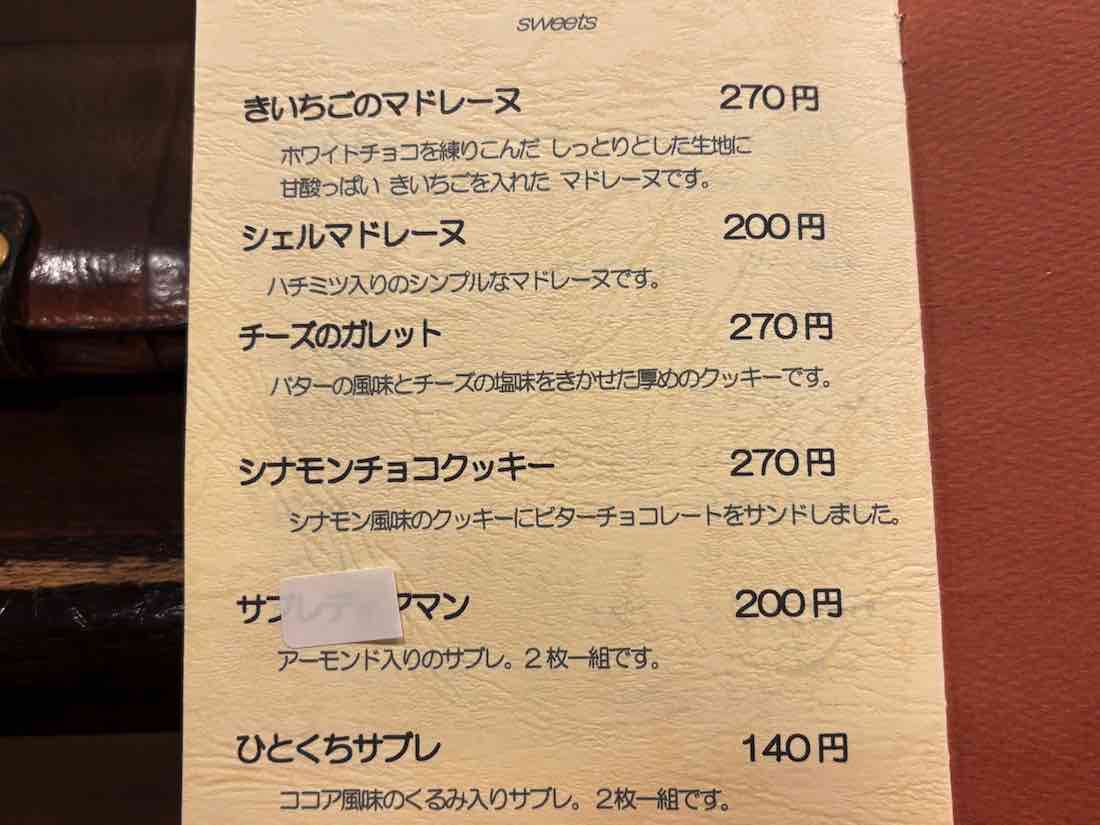 sweets
きいちごのマドレーヌ 270円
ホワイトチョコを練りこんだ しっとりとした生地に
甘酸っぱい きいちごを入れた マドレーヌです。
シェルマドレーヌ 200円
ハチミツ入りのシンプルなマドレーヌです。
チーズのガレット 270円
バターの風味とチーズの塩味をきかせた厚めのクッキーです。
シナモンチョコクッキー 270円
シナモン風味のクッキーにビターチョコレートをサンドしました。
サブレディアマン 200円
アーモンド入りのサブレ。2枚一組です。
ひとくちサブレ 140円
ココア風味のくるみ入りサブレ。2枚一組です。